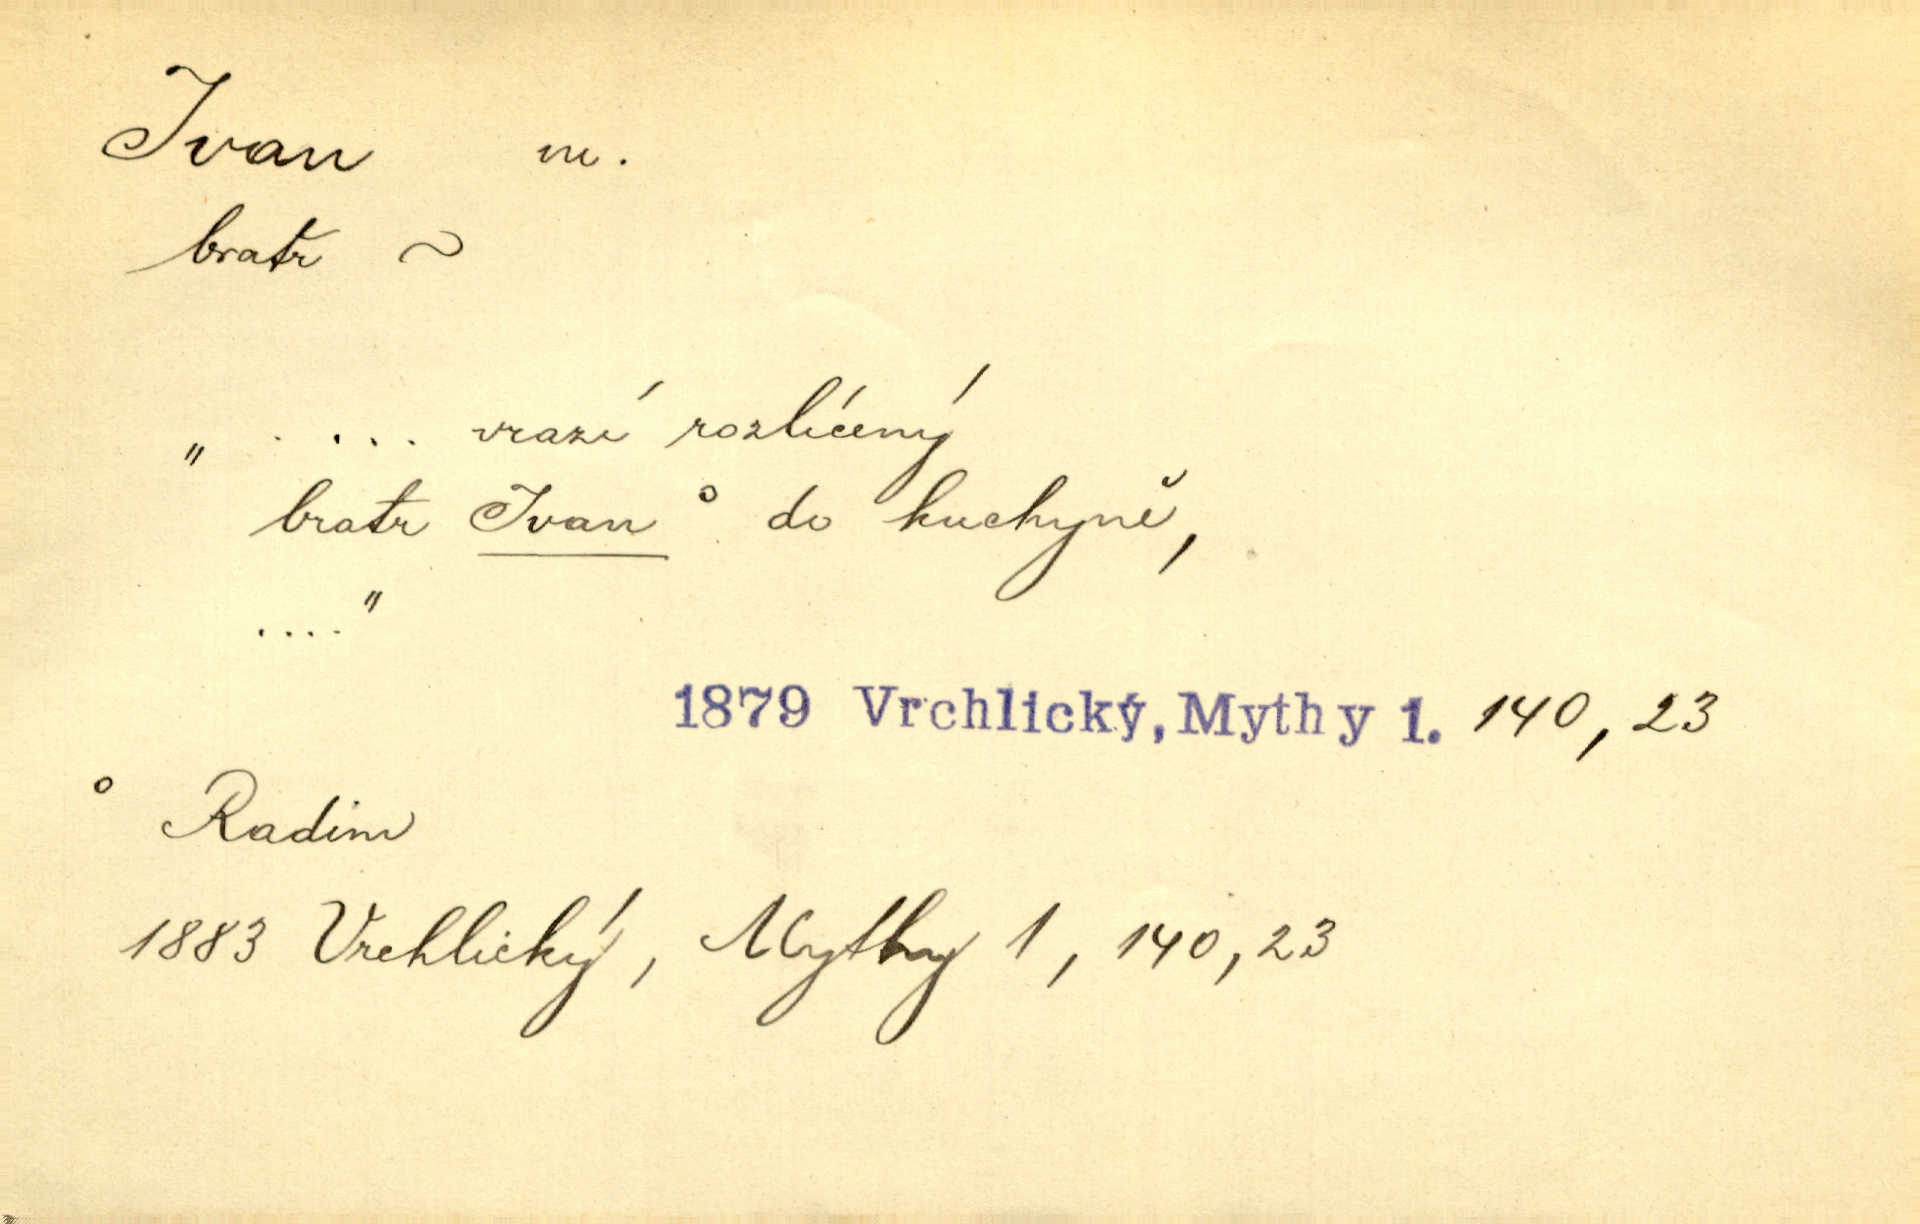 Ivan m.
bratr ~
„ .... vrazí rozlícený
bratr Ivan° do kuchyně,
...."
1879 Vrchlický, Mythy 1. 140, 23
° Radim
1883 Vrchlický, Mythy 1, 140, 23